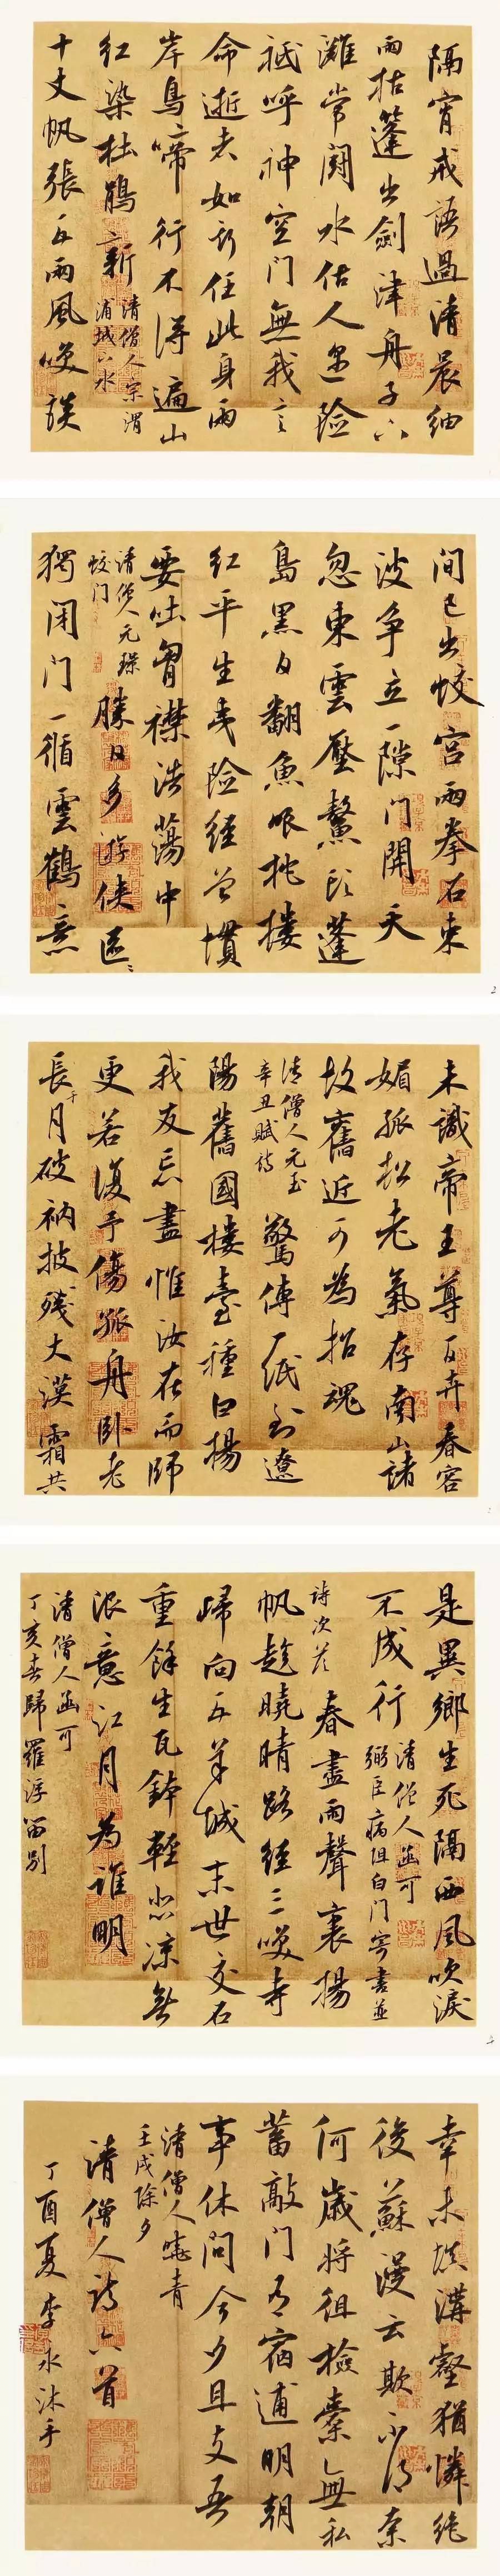 隔宵戒語過清晨細
雨枯篷出劍津舟子下
灘常鬭水估人遇險
祗呼神空門無我言
命逝者如斯任此身兩
岸鳥啼行不得遍山
紅染杜鵑新
清僧人宗渭
浦城下水
十丈帆張五兩風笑談
間已出蛟宮兩拳石束
波爭立一隙門開天
忽東雲壓鰲頭蓬
島黑日翻魚眼挑樓
紅平生夷險經曾慣
要吐胸襟浩蕩中
清僧人元璟
蛟門
勝日多游俠區區
獨閉門一循雲鶴意
未識帝王尊百卉春容
媚孤松老氣存南山諸
故舊近可為招魂
清僧人元玉
辛丑賦詩
驚傳一紙到遼
陽舊國樓臺種白楊
我友忘盡惟汝在而師
更若復予傷孤舟臥老
長干月破衲披殘大漠霜共
是異鄉生死隔西風吹淚
不成行
清僧人函可
弼臣病阻白门寄書並
詩次答
春盡雨聲裏揚
帆趁曉晴路經三笑寺
歸向五羊城末世交石
重餘生瓦鉢輕悲涼無
限意江月為誰明
清僧人函可
丁亥春歸羅浮留別
幸未填溝壑猶憐絕
後蘇漫云欺不得奈
何歲將徂檢橐無私
蓄敲門有宿逋明朝
事休問今夕且支吾
清僧人曉青
壬戌除夕
清僧人詩六首
丁酉夏李永沐手